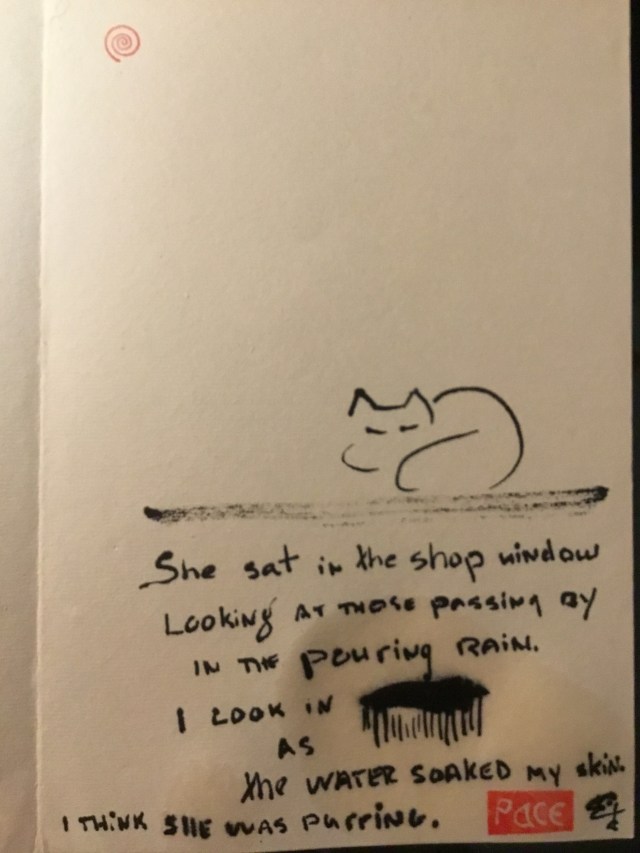 She sat in the shop window
Looking AT THOSE passing BY
IN THE pouring RAIN.
I LOOK IN
AS
the WATER SOAKED MY skin.
I THINK SHE WAS PURRING.
PACE